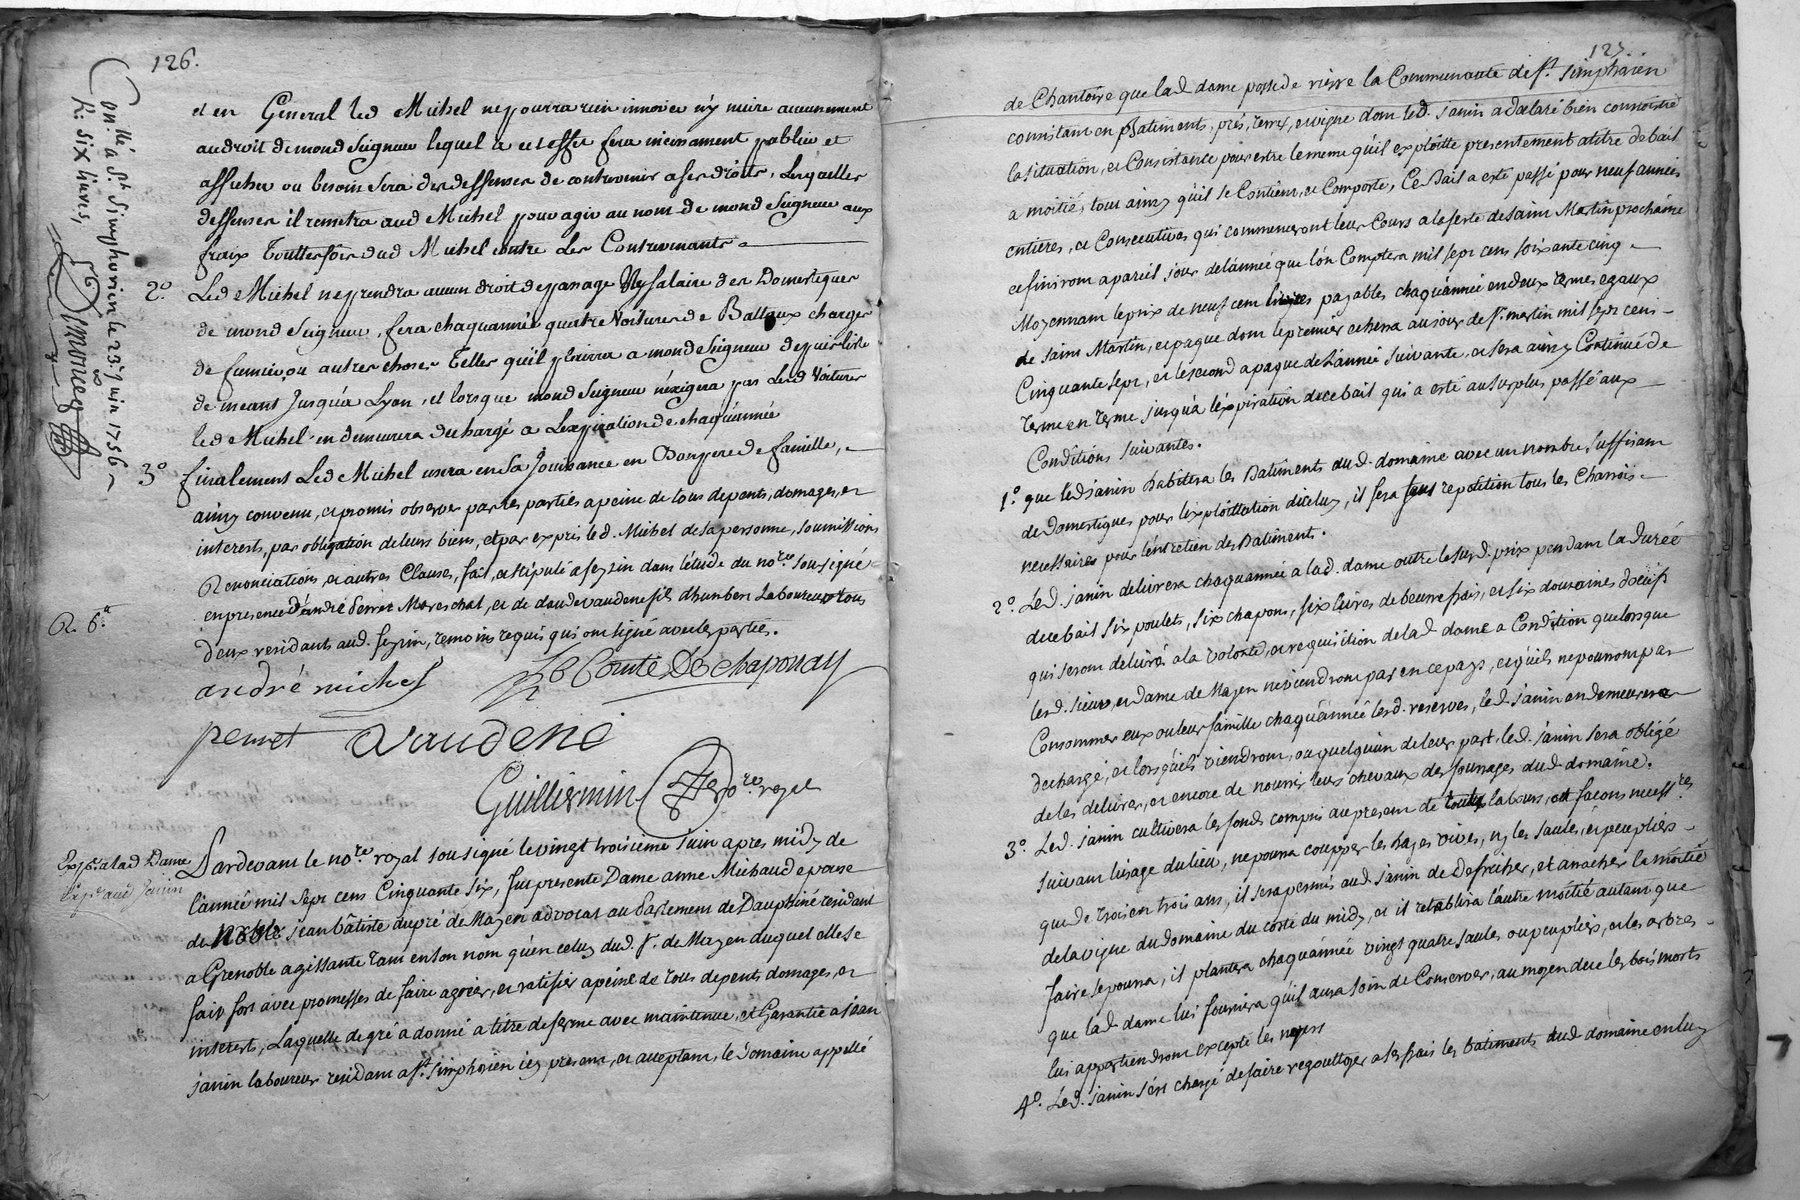 126.
Con.llé à St. Simphorien le 23e Juin 1756
R. six livres,
et en General led Michel ne pourra rien innover n'y nuire aucunement
au droit de mond Seigneur lequel a cet effet fera incessament publier et
afficher ou besoin sera des deffenses de contrevenir a ses droits, Lesquelles
deffenses il remettra aud Michel pour agir au nom de mond Seigneur aux
fraix Touttesfois dud Michel contre les Contrevenants
2o. Led Michel ne prendra aucun droit de passage Ny salaire des Domestiques
de mond Seigneur, fera chaquannée quatre Voitures de Batteaux chargés
de fumier, ou autres choses Telles qu'il plairra a mond Seigneur depuis
jusqu'à Lyon, et lorsque mond Seigneur n'exigera pas lesd Voitures
led Michel en demeurera dechargé a L'expiration de chaqu'année
3o finalement Led Michel usera en sa Jouissance en Bon pere de famille,
ainsy convenu, et promis observer par les parties a peine de tous depents, domages, et
interests, par obligation de leurs biens, et par exprès led. Michel de sa personne, soumissions
Renonciations, et autres Clauses, fait, et stipulé a feyzin dans l'étude du no.re soussigné
en presence d'andré Perret Mareschal, et de claude vaudene fils d'humbert Laboureur tous
deux residants aud. feyzin, temoins requis qui ont signé avec les parties.
R. 6.
andré michel
Le Comte De chaponay
perret Vaudene
Guilliermin No.re royal
Exp.é a lad Dame
Exp.é aud Janin
Pardevant le no.re royal soussigné le vingt troisieme Juin apres midy de
l'année mil sept cens Cinquante six, fut presente Dame anne Michaud epouse
de Noble jean bâtiste dupré de Mayen advocat au Parlement de Dauphiné residant
a Grenoble agissante tant en son nom qu'en celuy dud. S. de Mayen duquel elle se
fait fort avec promesses de faire agréer, et ratifier a peine de tous depents domages, et
interests, Laquelle de gré a donné a titre de ferme avec maintenue, et Garantie a jean
janin laboureur residant a St. simphorien icy present, et acceptant, le domaine appellé
127.
de Chantoire que lad dame possede riere la Communauté de St. Simphorien
consistant en Batiments, prés, terres, et vigne dont led. janin a declaré bien connoistre
la situation, et Consistance pour estre le meme qu'il exploitte presentement a titre de bail
a moitié, tout ainsy qu'il se Contient, et Comporte, Ce Bail a esté passé pour neuf années
entieres, et Consecutives qui commenceront leur Cours a la feste de saint Martin prochaine
et finiront a pareil jour de l'année que l'on Comptera mil sept cens soixante cinq
Moyennant le prix de neuf cent livres payables chaqu'année en deux termes egaux
de saint Martin, et paque dont le premier echerra au jour de St. martin mil sept cens
Cinquante sept, et le second a paque de L'année suivante, et sera ainsy Continué de
Terme en Terme jusqu'à l'expiration de ce bail qui a esté au surplus passé aux
Conditions suivantes.
1o. que led janin habitera les Batiments dud. domaine avec un nombre suffisant
de domestiques pour l'exploittation d'iceluy, il fera sans repetition tous les Charrois
necessaires pour l'entretien des Batiments.
2o. Led. janin delivrera chaquannée a lad. dame outre le susd. prix pendant la durée
de ce bail six poulets, six chapons, six livres de beurre frais, et six douzaines d'oeufs
qui seront delivrés a la volonté, et requisition de lad dame a Condition que lorsque
lesd. sieur, et dame de Mayen ne viendront pas en ce pays, et qu'ils ne pourront pas
Consommer eux ou leur famille chaqu'année lesd. reserves, led. janin en demeurera
dechargé, et lorsqu'ils viendront, ou quelqu'un de leur part, led. janin sera obligé
de les delivrer, et encore de nourrir leurs chevaux des fourrages dud. domaine.
3o. Led. janin cultivera les fonds compris au present de touts labours, et façons necess.res
suivant l'usage du lieu, ne pourra coupper les hayes vives, ny les saules, et peupliers
que de trois en trois ans, il sera permis aud. janin de defricher, et arracher la moitié
de la vigne du domaine du costé du midy, et il retablira l'autre moitié autant que
faire se pourra, il plantera chaqu'année vingt quatre saules ou peupliers, et les arbres
que lad dame lui fournira qu'il aura soin de Conserver, au moyen de ce les bois morts
lui appartiendront excepté les noyers
4o. Led. janin s'est chargé de faire regouttoyer a ses frais les batiments dud domaine en luy